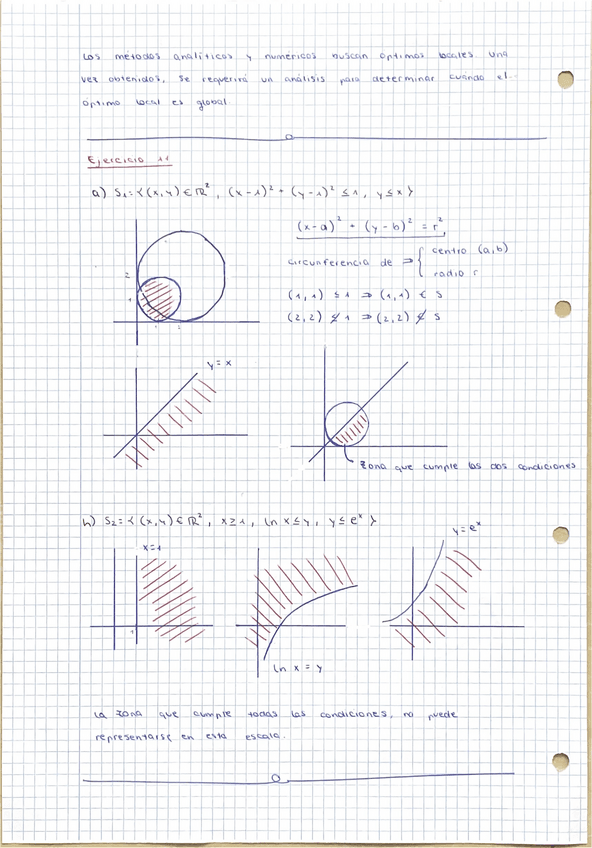 Los métodos analíticos y numéricos buscan óptimos locales. Una
vez obtenidos, se requerirá un análisis para determinar cuando el
óptimo local es global.
Ejercicio 11
a) S₁ = { (x,y) ∈ ℝ², (x-1)² + (y-1)² ≤ 1, y ≤ x }
(x-a)² + (y-b)² = r²
circunferencia de ⇒ { centro (a,b)
radio r
2
1
(1,1) ≤ 1 ⇒ (1,1) ∈ S
(2,2) ≰ 1 ⇒ (2,2) ∉ S
1 2
y = x
zona que cumple las dos condiciones
b) S₂ = { (x,y) ∈ ℝ², x ≥ 1, ln x ≤ y, y ≤ eˣ }
y = eˣ
x = 1
1
ln x = y
La zona que cumple todas las condiciones, no puede
representarse en esta escala.